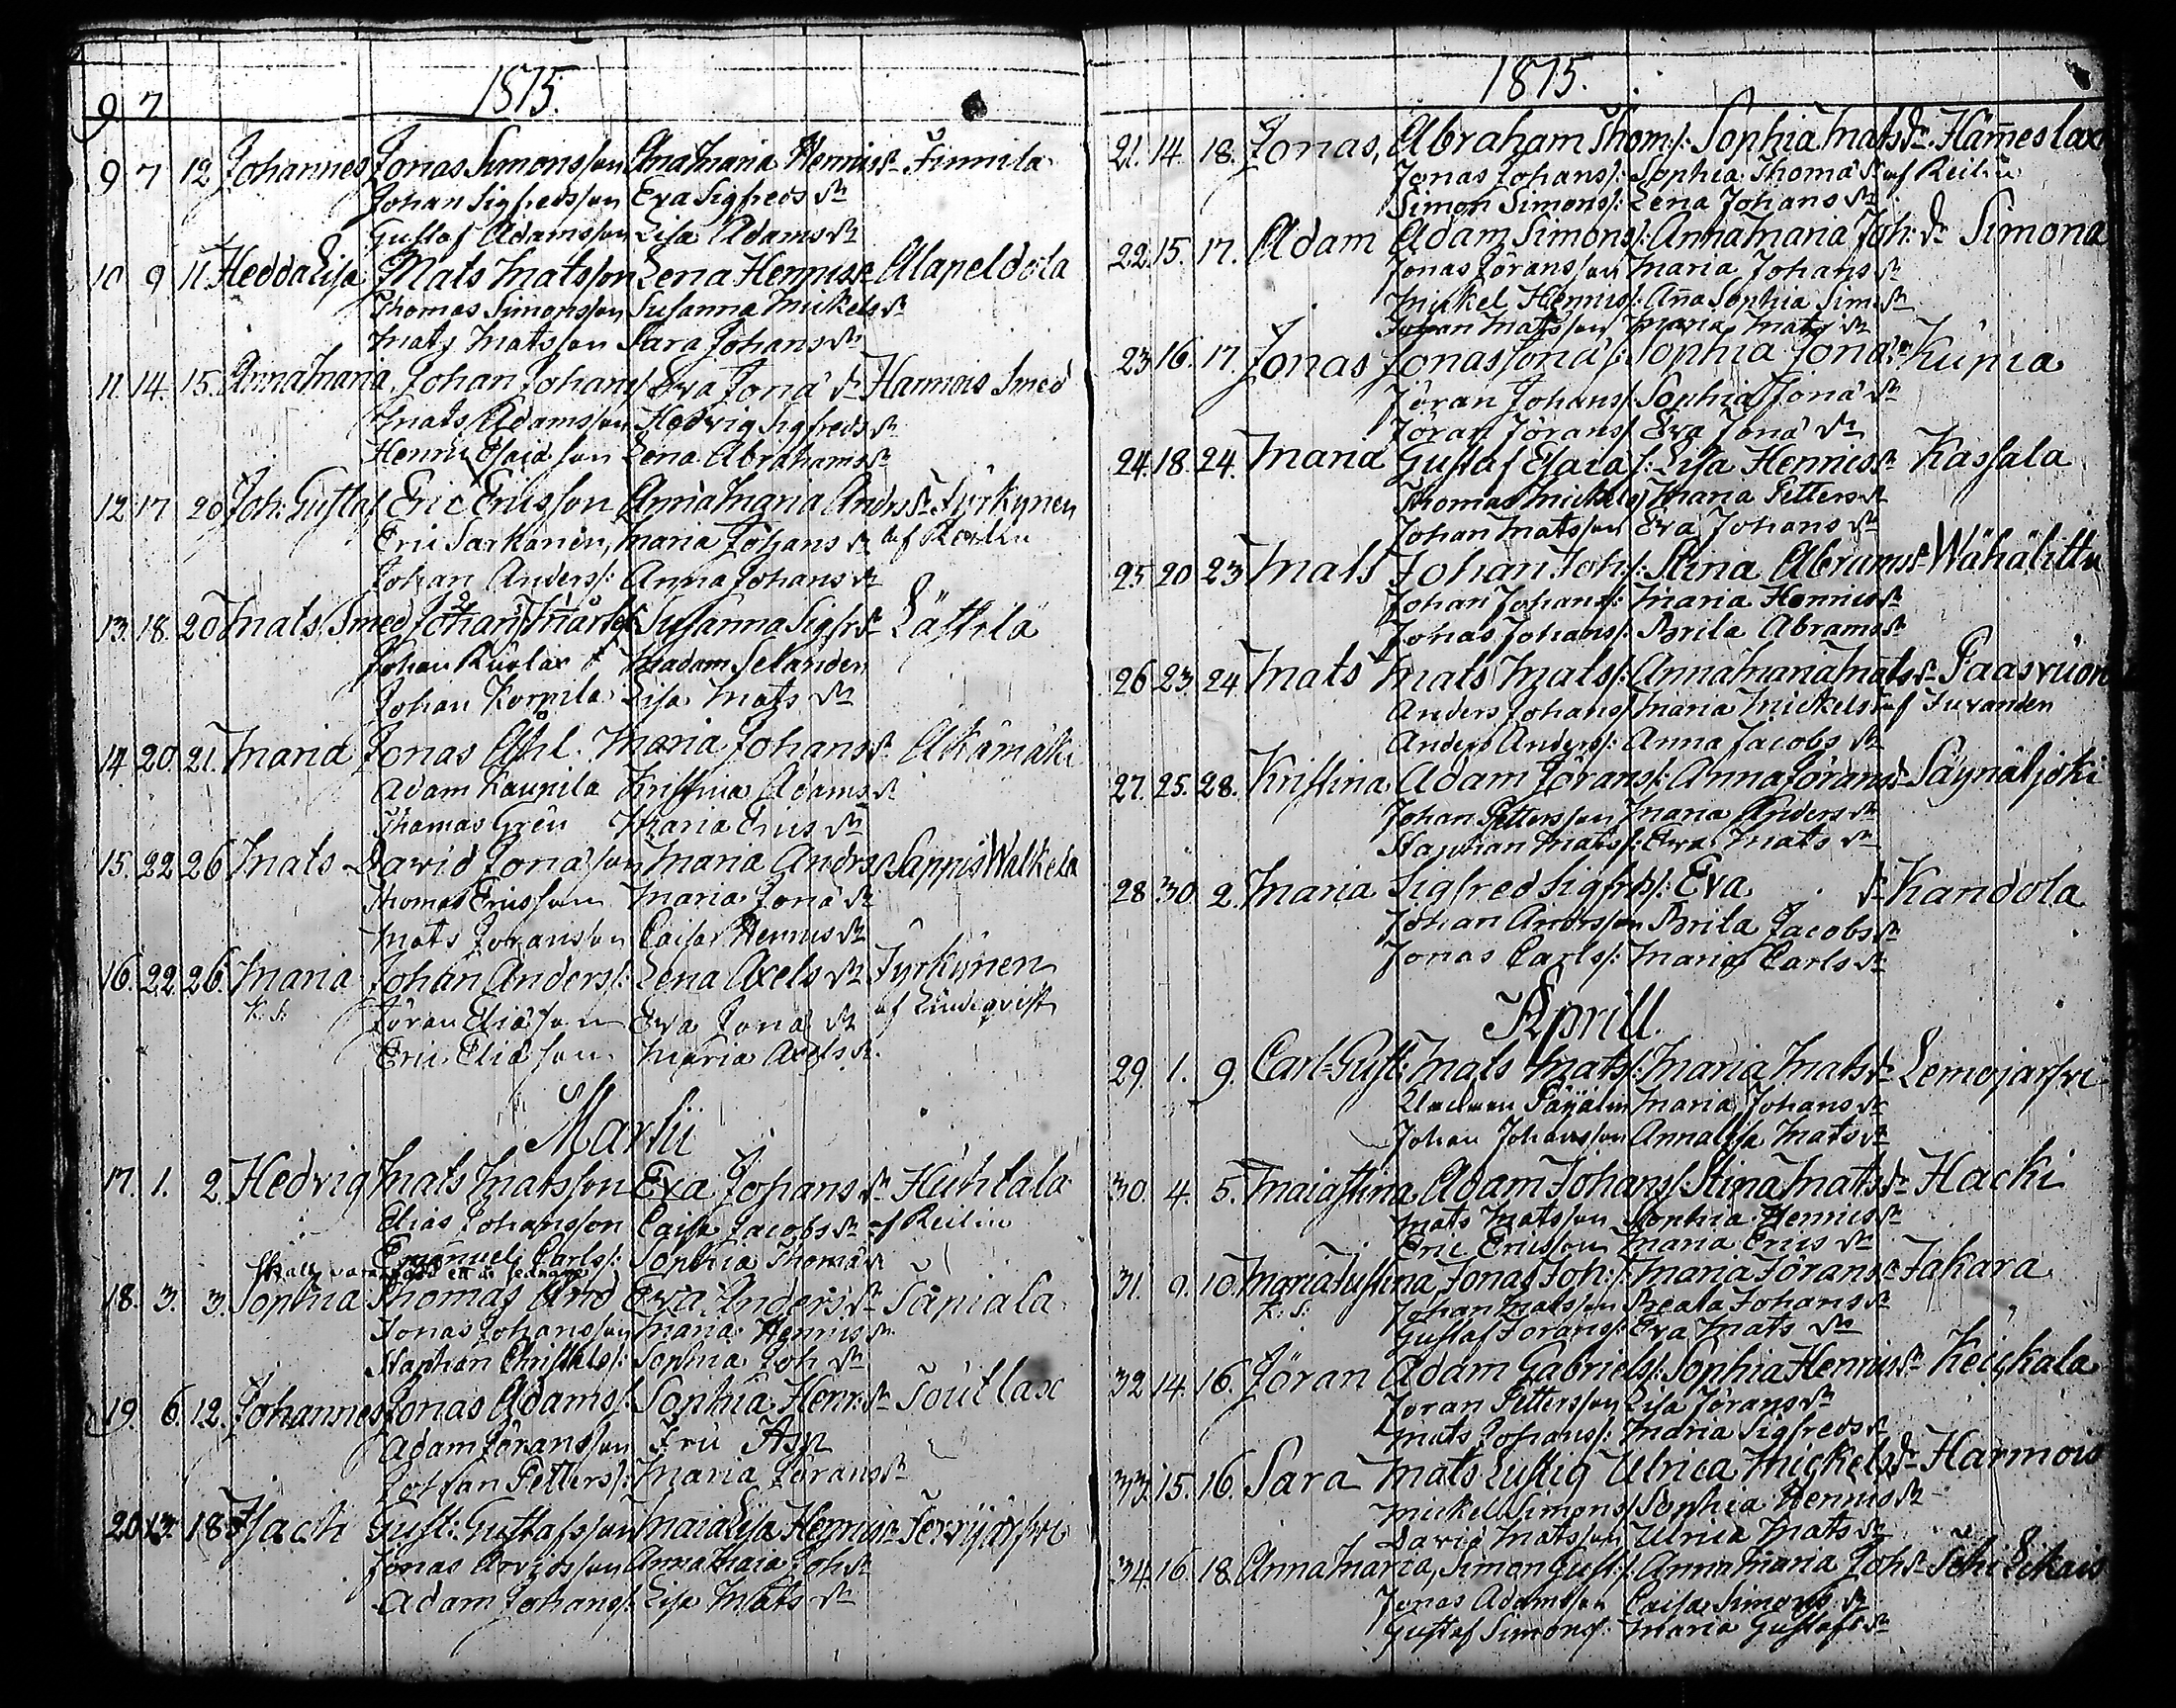 1815.
9 7
9 7 12 Johannes Jonas Simonsson Anna Maria Henrics dr Finnila
Johan Sigfredsson Eva Sigfreds dr
Gustaf Adamsson Lisa Adams dr
10 9 11 Hedda Lisa Mats Matsson Lena Henrics dr Alapeldola
Thomas Simonsson Susanna Mickels dr
Mats Matsson Sara Johans dr
11. 14. 15. Anna Maria Johan Johans Eva Jona dr Hannois Smed
Mats Adamsson Hedvig Sigfreds dr
Henric Esaiasson Lena Abrahams dr
12 17 20 Joh: Gustaf Eric Ericsson Anna Maria Anders dr Tyrkynen
Eric Sarkanen, Maria Johans dr af Reilin
Johan Anders/: Anna Johans dr
13. 18. 20 Mats Smed Johan Susanna Sigfr dr Lästilä
Johan Madam Selanden
Johan Korpila Lisa Mats dr
14 20 21. Maria Jonas Ahl. Maria Johans dr
Adam Kaupila Kristina Adams dr
Thomas Grén Maria Erics dr
15. 22 26 Mats David Jonasson Maria Anders dr Sappis Walkela
Thomas Ericsson Maria Jona dr
Mats Joransson Caisa Henrics dr
16. 22 26. Maria Johan Anders/: Lena Axels dr Tyrkynen
K. S. Jöran Eliasson Eva Jona dr af Lindqvist
Eric Eliasson Maria Axels dr
Martii
17. 1. 2. Hedvig Mats Matsson Eva Johans dr Huhtala
Elias Johansson Caisa Jacobs dr af Reilin
Emanuel Carls/: Sophia Thoma dr
Skall vara
18. 3. 3. Sophia Thomas And Eva Anders dr Säpiala
Jonas Johansson Maria Henrics dr
Staphan Sophia Joh dr
19. 6. 12. Johannes Jonas Adams/: Sophia Henr: dr Soutlax
Adam Jöransson Fru Asp
Johan Petters/: Maria Jörans dr
20 13. 18 Isach Gust: Gustafsson Maia Lisa Henrics dr Tervjärfvi
Jonas Arvidsson Anna Maia Joh dr
Adam Johans/: Lisa Mats dr
1815.
21. 14. 18. Jonas, Abraham Thom/: Sophia Mats dr Hämeslax
Jonas Johans/: Sophia Thoma dr af Reilin
Simon Simons/: Lena Johans dr
22. 15. 17. Adam Adam Simons/: Anna Maria Joh: dr Simona
Jonas Jöransson Maria Johans dr
Mickel Henrics/: Anna Sophia Sim dr
Johan Matsson Maria Mats dr
23 16. 17. Jonas Jonas Jona/: Sophia Jona dr Kupia
Jöran Johans/: Sophia Jona dr
Jöran Jörans/ Eva Jona dr
24. 18. 24. Maria Gustaf Esaia/: Lisa Henrics dr Kassala
Thomas Mickels/ Maria Petters dr
Johan Matsson Eva Johans dr
25 20 23 Mats Johan Joh/: Stina Abrams dr Wähälittu
Johan Johans/: Maria Henrics dr
Jonas Johans/: Brita Abrams dr
26 23. 24 Mats Mats Mats/: Anna Maria Mats dr
Anders Johans/ Maria Mickels dr af Juvanden
Anders Anders/: Anna Jacobs dr
27. 25. 28. Kristina Adam Jörans/: Anna Jörans dr Säynäljoki
Johan Pettersson Maria Anders dr
Staphan Mats/: Eva Mats dr
28 30 2. Maria Sigfred Sigfrs/: Eva dr Kandola
Johan Andersson Brita Jacobs dr
Jonas Carls/: Maria Carls dr
Aprill.
29. 1. 9. Carl Gust: Mats Mats/: Maria Mats dr Lemojarfvi
Maria Johans dr
Johan Johansson Anna Lisa Mats dr
30. 4. 5. Maia Stina Adam Johans/ Stina Mats dr Hacki
Mats Matsson Sophia Henrics dr
Eric Ericsson Maria Erics dr
31. 9. 10. Maria Justina Jonas Joh:/: Maria Jörans dr Jakara
K. S. Johan Matsson Beata Johans dr
Gustaf Jorans/: Eva Mats dr
32 14. 16. Jöran Adam Gabriels/: Sophia Henrics dr Keickala
Jöran Pettersson Lisa Jörans dr
Mats Johans/: Maria Sigfreds dr
33. 15. 16. Sara Mats Lustig Ulrica Mickels dr Harmois
Mickel Simons/ Sophia Henrics dr
David Matsson Ulrica Mats dr
34. 16. 18. Anna Maria, Simon Gust/: Anna Maria Joh dr
Jonas Adamsson Caisa Simons dr
Gustaf Simons/: Maria Gustafs dr